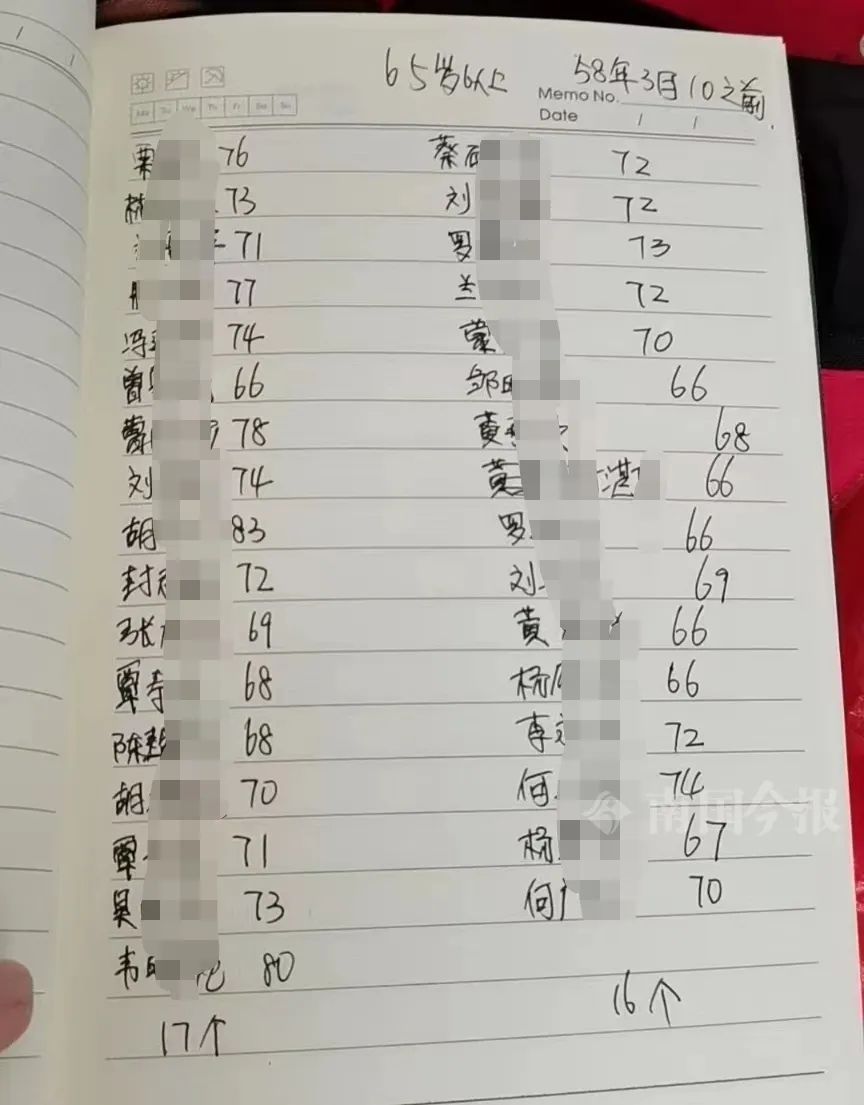 65岁以上 58年3月10之前
Memo No.
Mo Tu We Th Fr Sa Su
Date / /
覃 76 蔡 72
林 73 刘 72
71 罗 73
77 兰 72
冯 74 蒙 70
曾 66 邹 66
蒙 78 黄 68
刘 74 黄 湛 66
胡 83 罗 66
封 72 刘 69
张 69 黄 66
覃寿 68 杨 66
陈 68 李 72
胡 70 何 74
覃 71 杨 67
吴 73 何 70
韦 80
17个 16个
南国今报